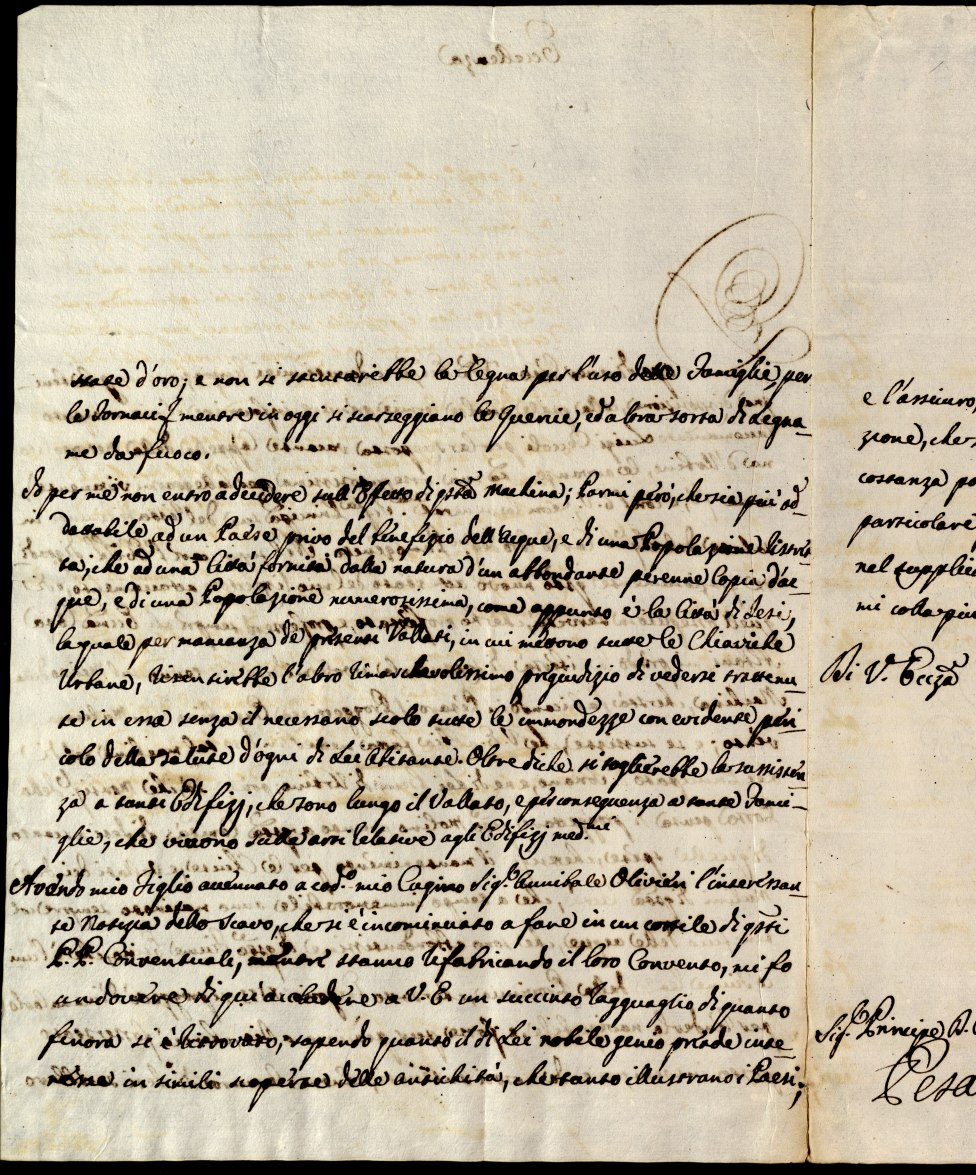 state d'oro; e non si stenterebbe la legna per l'uso delle Famiglie, per
le Fornaci, mentre in oggi si scarseggiano le Quercie, ed altra sorta di Legna-
me da fuoco.
Io per me non entro a decidere sull'Effetto di q̃sta Machina; Parmi però, che sia più ad-
databile ad un Paese privo del benefizio dell'Acque, e di una Popolazione ristret-
ta, che ad una Città fornita dalla natura d'un abbondante perenne Copia d'ac-
que, e di una Popolazione numerosissima, come appunto è la Città di Jesi,
la quale per mancanza de' presenti Vallati, in cui mettono tutte le Chiaviche
Urbane, risentirebbe l'altro rimarchevolissimo pregiudizio di vedersi trattenu-
te in esse senza il necessario scolo tutte le immondezze con evidente peri-
colo della salute d'ogni di Lei Abitante. Oltre di che si toglierebbe la sussisten-
za a tanti Edifizj, che sono lungo il Vallato, e per conseguenza a tante Fami-
glie, che vivono sulle arti relative agli Edifizj med.mi
Avendo mio Figlio accennato a cod.o mio Cugino Sig.r Annibale Olivieri l'interessan-
te Notizia dello scavo, che si è incominciato a fare in un cortile di q̃sti
P.P. Conventuali, mentre stanno rifabricando il loro Convento, mi fo
un dovere di qui accludere a V. E. un succinto ragguaglio di quanto
finora si è ritrovato, sapendo quanto il di Lei nobile genio prende inte-
resse in simili scoperte delle antichità, che tanto illustrano i Paesi;
e l'assicuro,
zione, che
costanza
particolare
nel supplic
mi colla più
Di V. Ecc̃za
Sig.r Principe
Pesa